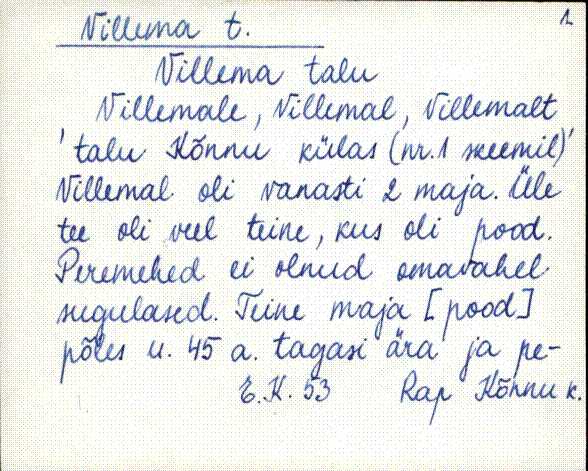 Villema t.
1
Villema talu
Villemale, Villemal, Villemalt
'talu Kõnnu külas (nr. 1 skeemil)'
Villemal oli vanasti 2 maja. Üle
tee oli veel teine, kus oli pood.
Peremehed ei olnud omavahel
sugulased. Teine maja [pood]
põles u. 45 a. tagasi ära ja pe-
E.K. 53 Rap Kõnnu k.